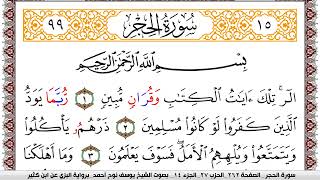 ١٥ سُورَةُ الْحِجْرِ ٩٩
بِسْمِ اللَّهِ الرَّحْمَٰنِ الرَّحِيمِ
الٓرۚ تِلْكَ ءَايَٰتُ ٱلْكِتَٰبِ وَقُرَانٍ مُّبِينٍ ١ رُّبَّمَا يَوَدُّ
ٱلَّذِينَ كَفَرُوا۟ لَوْ كَانُوا۟ مُسْلِمِينَ ٢ ذَرْهُمُۥ يَأْكُلُوا۟
وَيَتَمَتَّعُوا۟ وَيُلْهِهِمُ ٱلْأَمَلُ فَسَوْفَ يَعْلَمُونَ ٣ وَمَا أَهْلَكْنَا
سورة الحجر الصفحة ٢٦٢ الحزب ٢٧ الجزء ١٤ بصوت الشيخ يوسف نوح أحمد برواية البزي عن ابن كثير